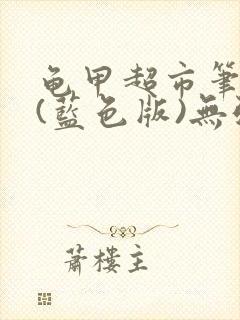 龟甲超市筆
(藍色版)無
蕭樓主